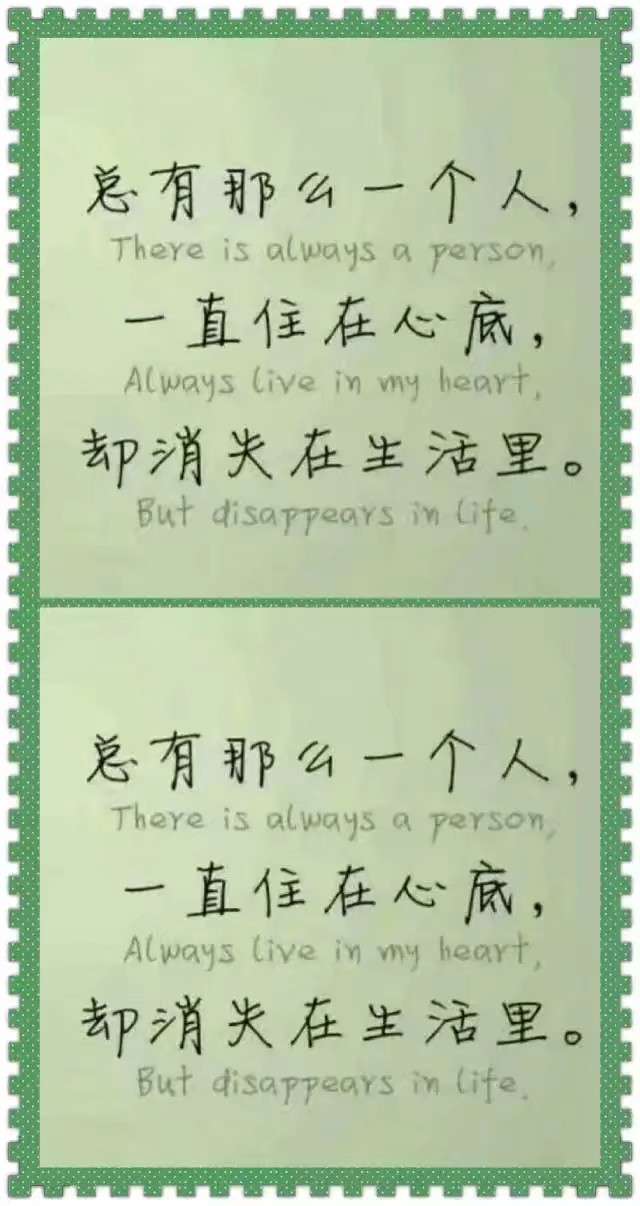 总有那么一个人，
There is always a person,
一直住在心底，
Always live in my heart,
却消失在生活里。
But disappears in life.
总有那么一个人，
There is always a person,
一直住在心底，
Always live in my heart,
却消失在生活里。
But disappears in life.